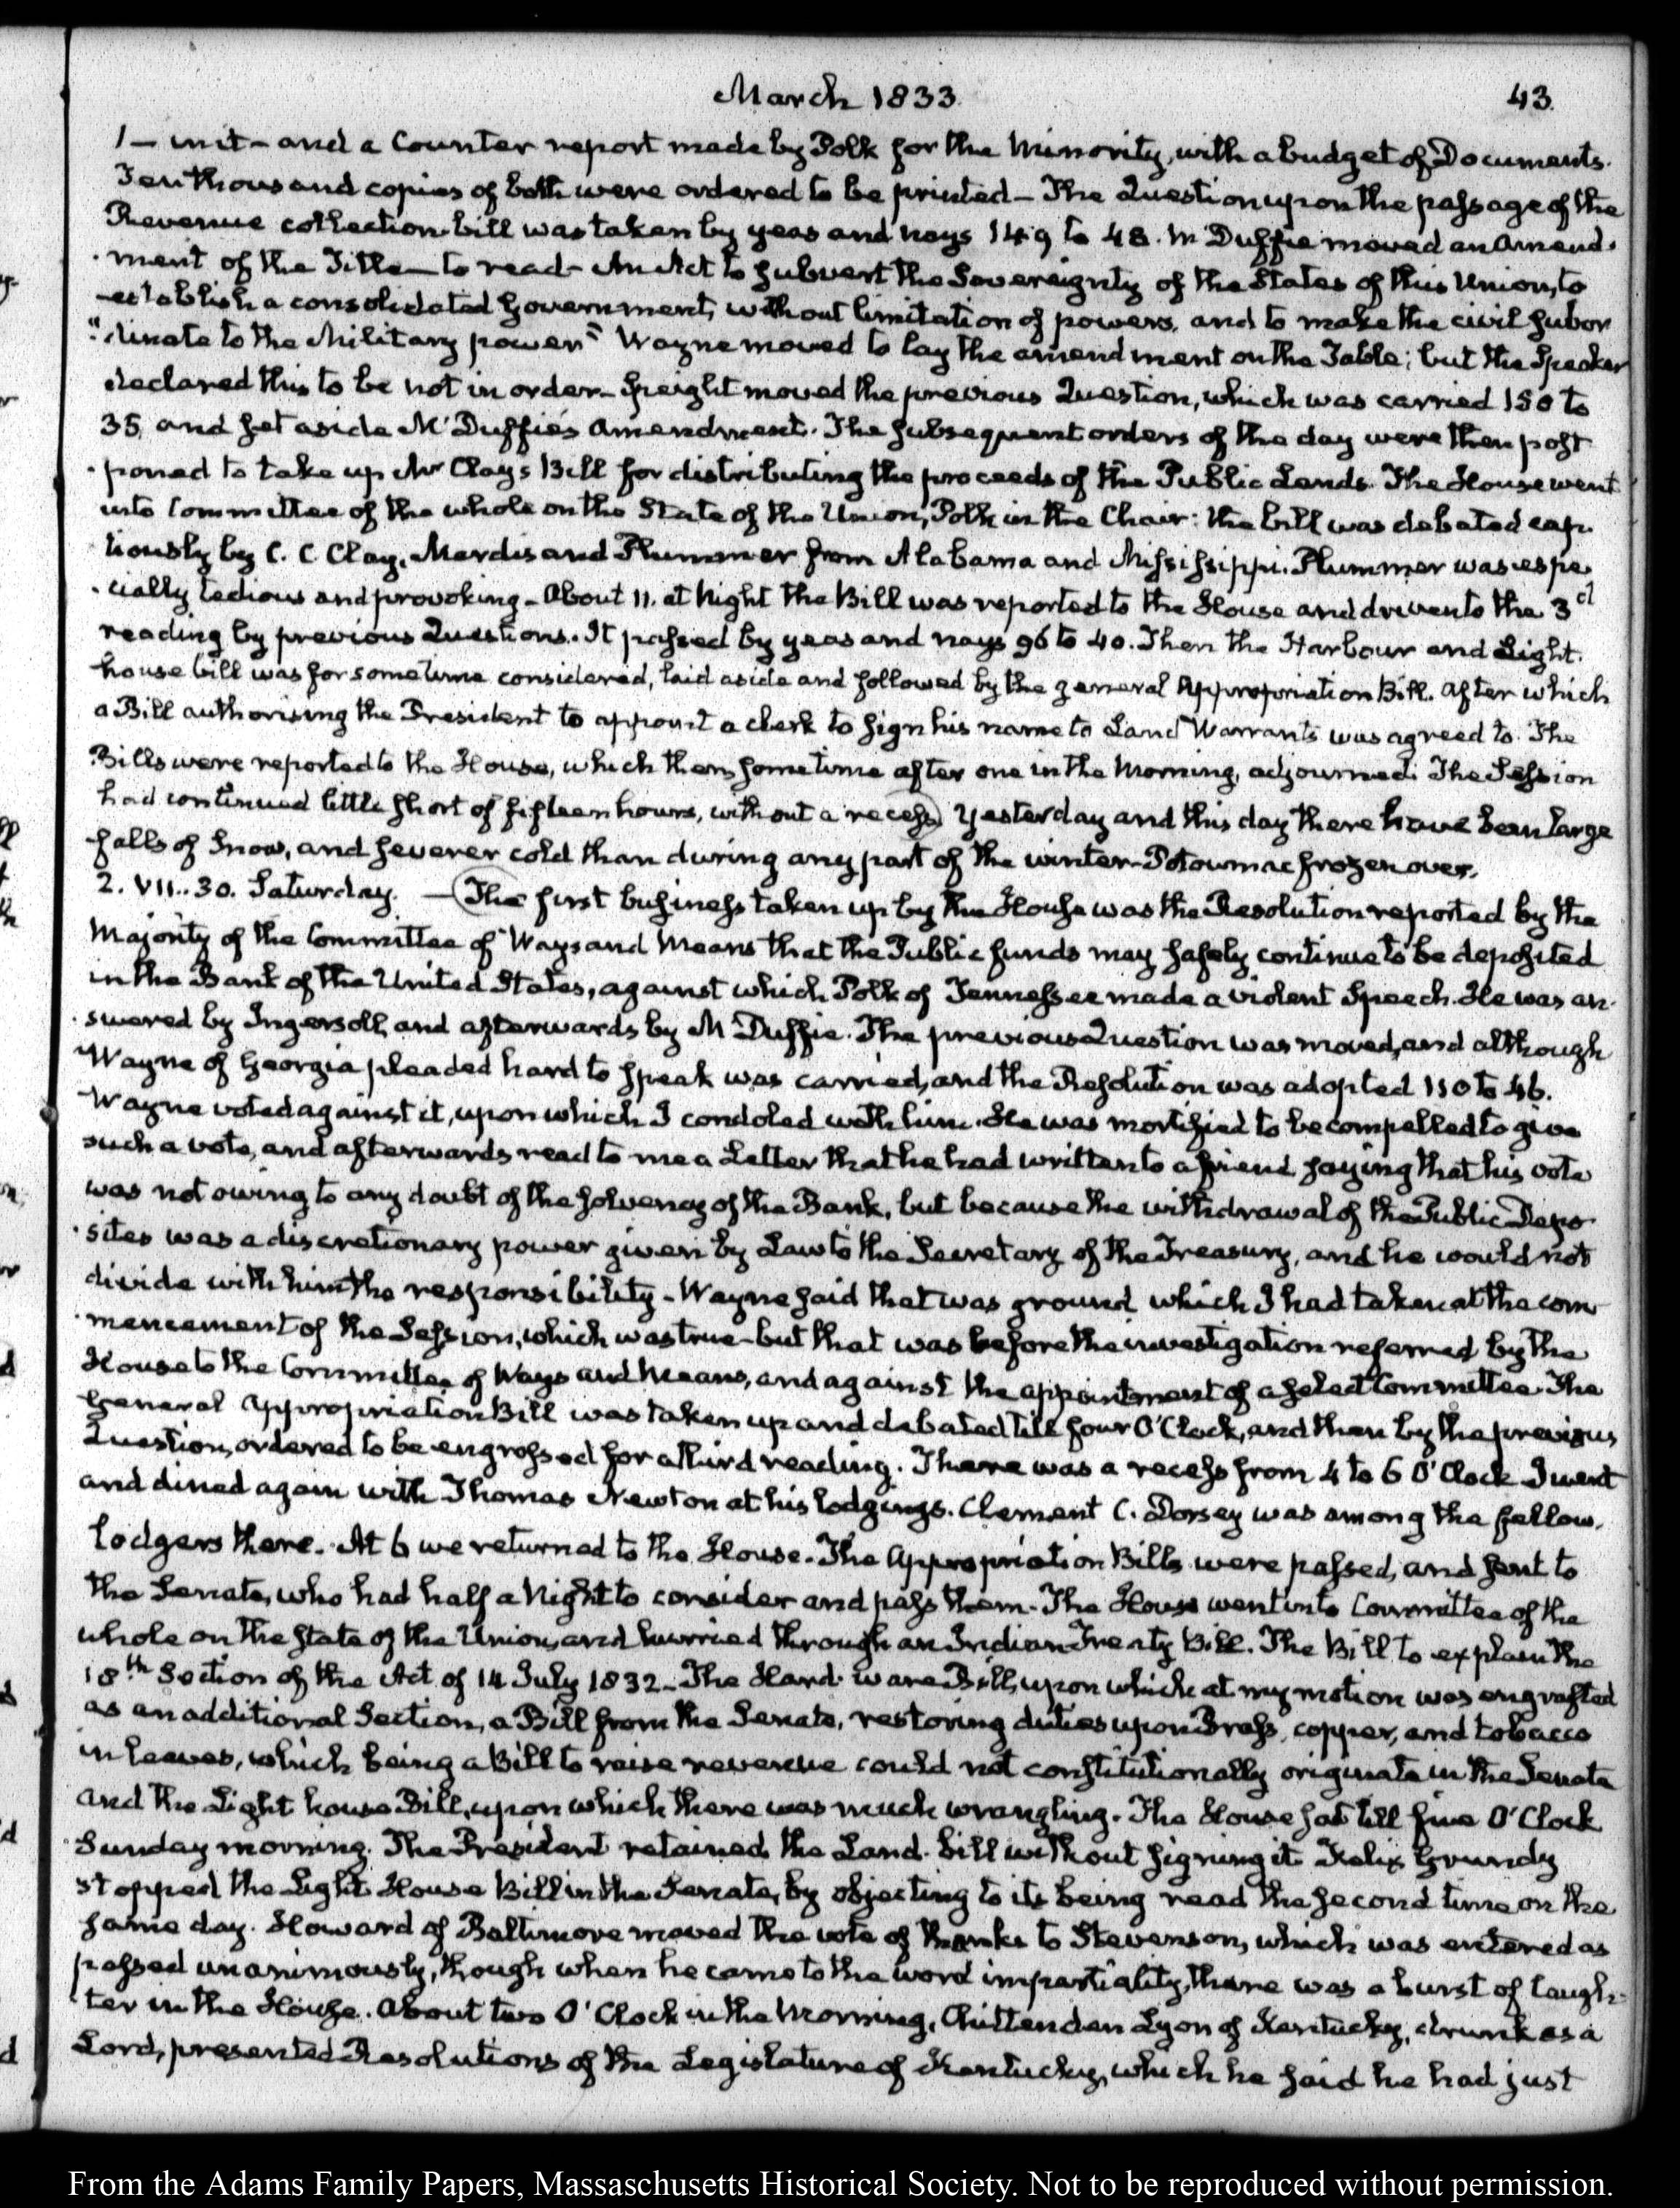 March 1833. 43.
1 — mit — and a Counter report made by Polk for the Minority, with a budget of Documents.
Ten thousand copies of both were ordered to be printed — The Question upon the passage of the
Revenue collection bill was taken by yeas and nays 149 to 48. Mc Duffie moved an Amend-
-ment of the Title — to read — An Act to subvert the Sovereignty of the States of this Union, to
-establish a consolidated Government, without limitation of powers, and to make the civil subor
"dinate to the Military power" Wayne moved to lay the amendment on the Table; but the Speaker
declared this to be not in order — Speight moved the previous Question, which was carried 150 to
35, and set aside Mc Duffie's Amendment. The subsequent orders of the day were then post
-poned to take up Mr Clay's Bill for distributing the proceeds of the Public Lands. The House went
into Committee of the whole on the State of the Union, Polk in the Chair: the bill was debated cap-
tiously by C. C Clay, Mardis and Plummer from Alabama and Mississippi. Plummer was espe-
-cially tedious and provoking — About 11. at Night the Bill was reported to the House and driven to the 3d
reading by previous Questions. It passed by yeas and nays 96 to 40. Then the Harbour and Light-
house bill was for some time considered, laid aside and followed by the general Appropriation Bill. After which
a Bill authorising the President to appoint a clerk to sign his name to Land Warrants was agreed to. The
Bills were reported to the House, which then, sometime after one in the Morning, adjourned. The Session
had continued little short of fifteen hours, without a recess) Yesterday and this day there have been large
falls of Snow, and severer cold than during any part of the winter — Potowmac frozen over.
2. VII..30. Saturday. — (The first business taken up by the House was the Resolution reported by the
Majority of the Committee of Ways and Means that the Public funds may safely continue to be deposited
in the Bank of the United States, against which Polk of Tennessee made a violent Speech. He was an-
-swered by Ingersoll, and afterwards by Mc Duffie. The previous Question was moved, and although
Wayne of Georgia pleaded hard to speak was carried, and the Resolution was adopted 110 to 46.
Wayne voted against it, upon which I condoled with him. He was mortified to be compelled to give
such a vote, and afterwards read to me a Letter that he had written to a friend saying that his vote
was not owing to any doubt of the solvency of the Bank, but because the withdrawal of the Public Depo-
-sites was a discretionary power given by Law to the Secretary of the Treasury, and he would not
divide with him the responsibility — Wayne said that was ground which I had taken at the com-
-mencement of the Session, which was true — but that was before the investigation referred by the
House to the Committee of Ways and Means, and against the appointment of a select Committee. The
General Appropriation Bill was taken up and debated till four O'Clock, and then by the previous
Question, ordered to be engrossed for a third reading. There was a recess from 4 to 6 O'Clock I went
and dined again with Thomas Newton at his lodgings. Clement C. Dorsey was among the fellow-
lodgers there. At 6 we returned to the House. The Appropriation Bills were passed, and sent to
the Senate, who had half a Night to consider and pass them — The House went into Committee of the
whole on the state of the Union, and hurried through an Indian Treaty Bill. The Bill to explain the
18th Section of the Act of 14 July 1832 — The Hard ware Bill, upon which at my motion was engrafted
as an additional Section, a Bill from the Senate, restoring duties upon Brass, copper, and tobacco
in leaves, which being a Bill to raise revenue could not constitutionally originate in the Senate
and the Light house Bill, upon which there was much wrangling. The House sat till five O'Clock
Sunday morning. The President retained the Land-bill without signing it. Felix Grundy
stopped the Light House Bill in the Senate, by objecting to its being read the second time on the
same day. Howard of Baltimore moved the vote of thanks to Stevenson, which was entered as
passed unanimously, though when he came to the word impartiality, there was a burst of laugh-
ter in the House. About two O'Clock in the Morning, Chittenden Lyon of Kentucky, drunk as a
Lord, presented Resolutions of the Legislature of Kentucky, which he said he had just
From the Adams Family Papers, Massachusetts Historical Society. Not to be reproduced without permission.